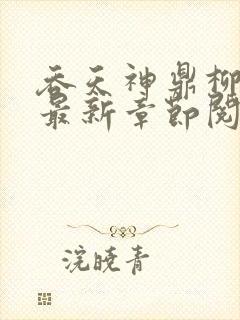 吞天神鼎柳
最新章节阅
浣晓青